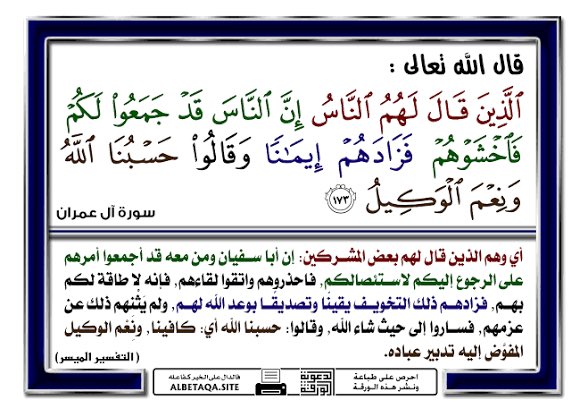 قال الله تعالى :
ٱلَّذِينَ قَالَ لَهُمُ ٱلنَّاسُ إِنَّ ٱلنَّاسَ قَدۡ جَمَعُواْ لَكُمۡ
فَٱخۡشَوۡهُمۡ فَزَادَهُمۡ إِيمَٰنٗا وَقَالُواْ حَسۡبُنَا ٱللَّهُ
وَنِعۡمَ ٱلۡوَكِيلُ ١٧٣
سورة آل عمران
أي وهم الذين قال لهم بعض المشركين: إن أبا سفيان ومن معه قد أجمعوا أمرهم
على الرجوع إليكم لاستئصالكم، فاحذروهم واتقوا لقاءهم، فإنه لا طاقة لكم
بهم، فزادهم ذلك التخويف يقينًا وتصديقًا بوعد الله لهم، ولم يَثْنهم ذلك عن
عزمهم، فساروا إلى حيث شاء الله، وقالوا: حسبنا الله أي: كافينا، ونِعْم الوكيل
المفوَّض إليه تدبير عباده.
(التفسير الميسر)
فالدال على الخير كفاعله
ALBETAQA.SITE
دعوية
الورقة
احرص على طباعة
ونشر هذه الورقة